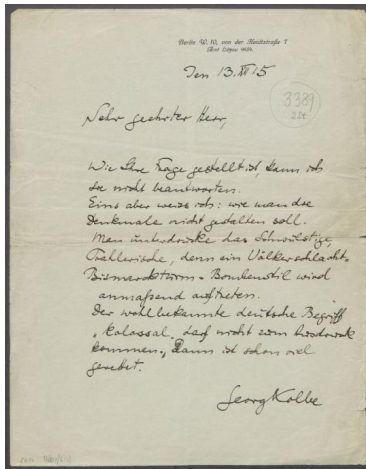 Berlin W. 10, von der Heydtstraße 7
Amt Lützow 9684.
Den 13. XII 15
3389
224
Sehr geehrter Herr,
Wie Ihre Frage gestellt ist, kann ich
sie nicht beantworten.
Eins aber weiss ich: wie man die
Denkmale nicht gestalten soll.
Man unterdrücke das Schwülstige,
denn ein Völkerschlacht-
Bismarckturm- Bonbonstil wird
anmaßend auftreten.
Der wohlbekannte deutsche Begriff
"Kolossal" darf nicht zum Ausdruck
kommen. Dann ist schon viel
gerettet.
Georg Kolbe